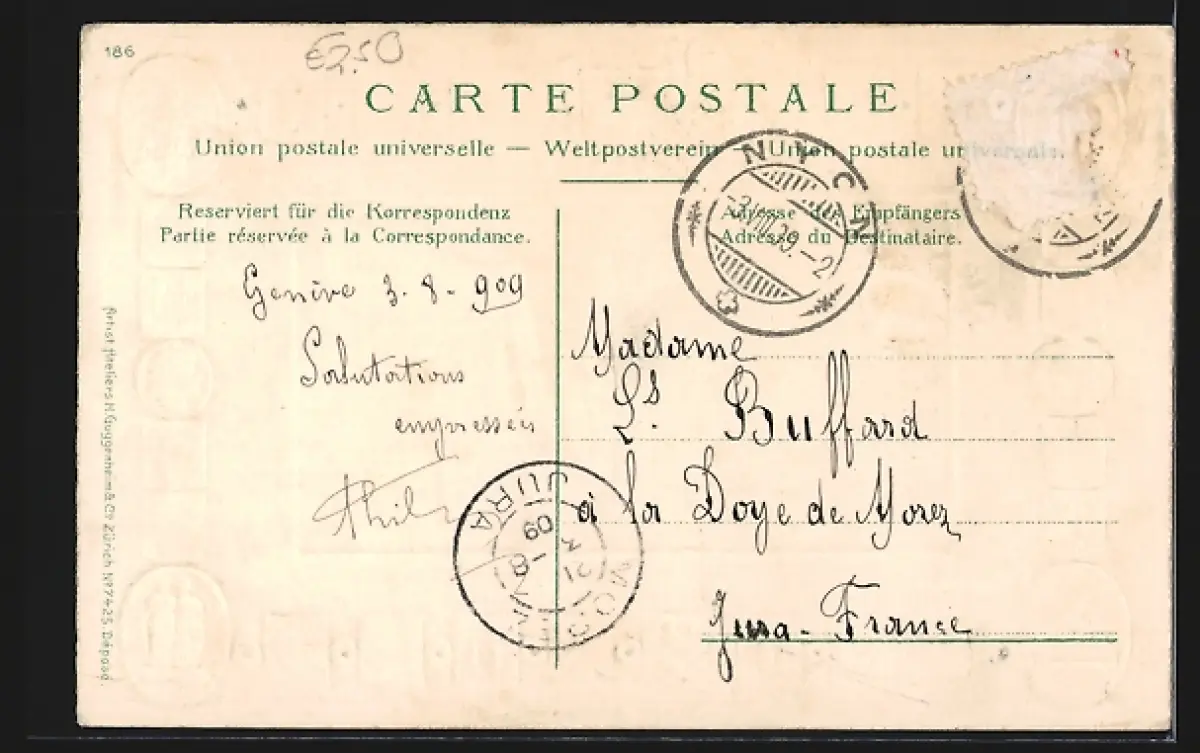 186
€2.50
CARTE POSTALE
Union postale universelle — Weltpostverein — Union postale universale.
Reserviert für die Korrespondenz
Partie réservée à la Correspondance.
Adresse des Empfängers
Adresse du Destinataire.
NYON
Genève 3. 8. 909
Salutations
empressées
Madame
Ls. Buffard
à la Doye de Morez
Jura - France
MOREZ
JURA
09
Artist. Ateliers H. Guggenheim & Co. Zürich No 7425. Déposé.